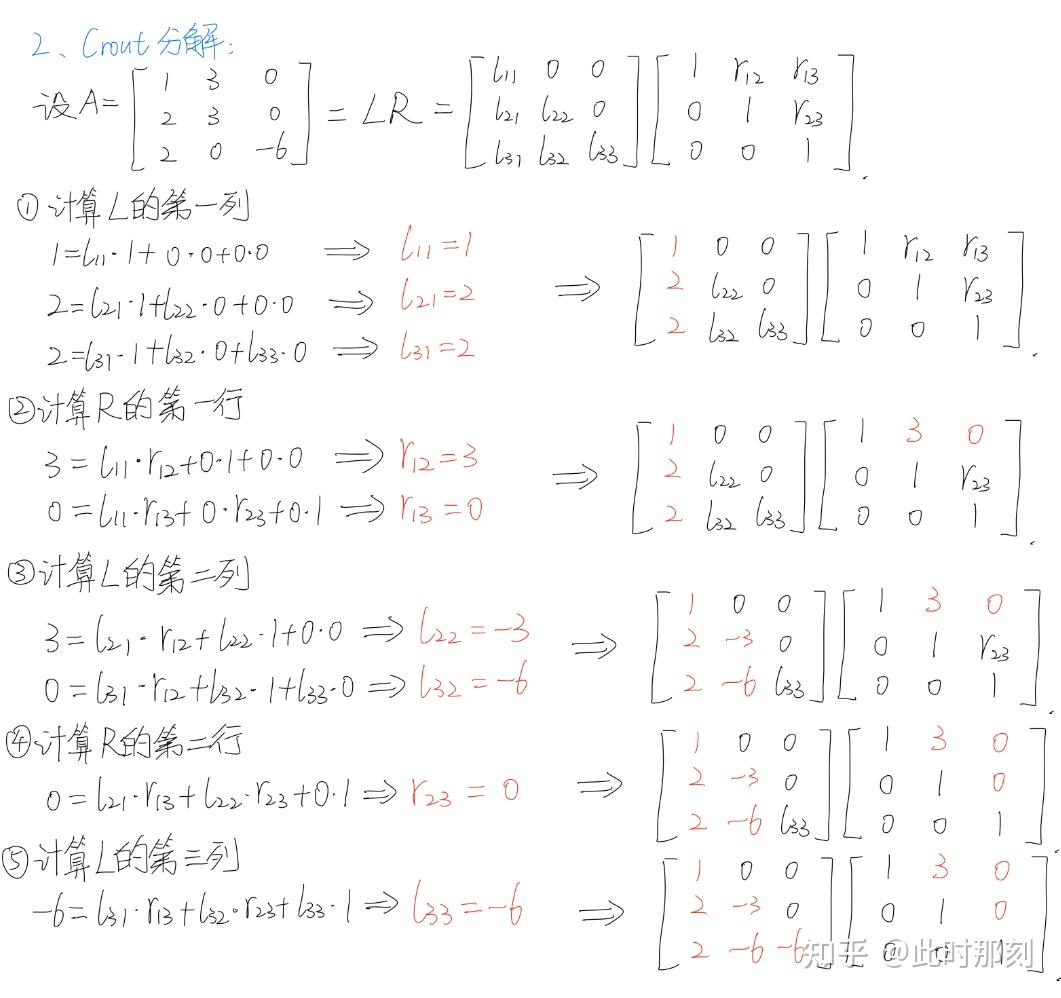 2、Crout分解:
设A= [1 3 0; 2 3 0; 2 0 -6] = LR = [l11 0 0; l21 l22 0; l31 l32 l33] [1 r12 r13; 0 1 r23; 0 0 1].
①计算L的第一列
1=l11·1+0·0+0·0 ⇒ l11=1
2=l21·1+l22·0+0·0 ⇒ l21=2
2=l31·1+l32·0+l33·0 ⇒ l31=2
⇒ [1 0 0; 2 l22 0; 2 l32 l33] [1 r12 r13; 0 1 r23; 0 0 1].
②计算R的第一行
3=l11·r12+0·1+0·0 ⇒ r12=3
0=l11·r13+0·r23+0·1 ⇒ r13=0
⇒ [1 0 0; 2 l22 0; 2 l32 l33] [1 3 0; 0 1 r23; 0 0 1].
③计算L的第二列
3=l21·r12+l22·1+0·0 ⇒ l22=-3
0=l31·r12+l32·1+l33·0 ⇒ l32=-6
⇒ [1 0 0; 2 -3 0; 2 -6 l33] [1 3 0; 0 1 r23; 0 0 1].
④计算R的第二行
0=l21·r13+l22·r23+0·1 ⇒ r23=0
⇒ [1 0 0; 2 -3 0; 2 -6 l33] [1 3 0; 0 1 0; 0 0 1].
⑤计算L的第三列
-6=l31·r13+l32·r23+l33·1 ⇒ l33=-6
⇒ [1 0 0; 2 -3 0; 2 -6 -6] [1 3 0; 0 1 0; 0 0 1].
知乎 @此时那刻